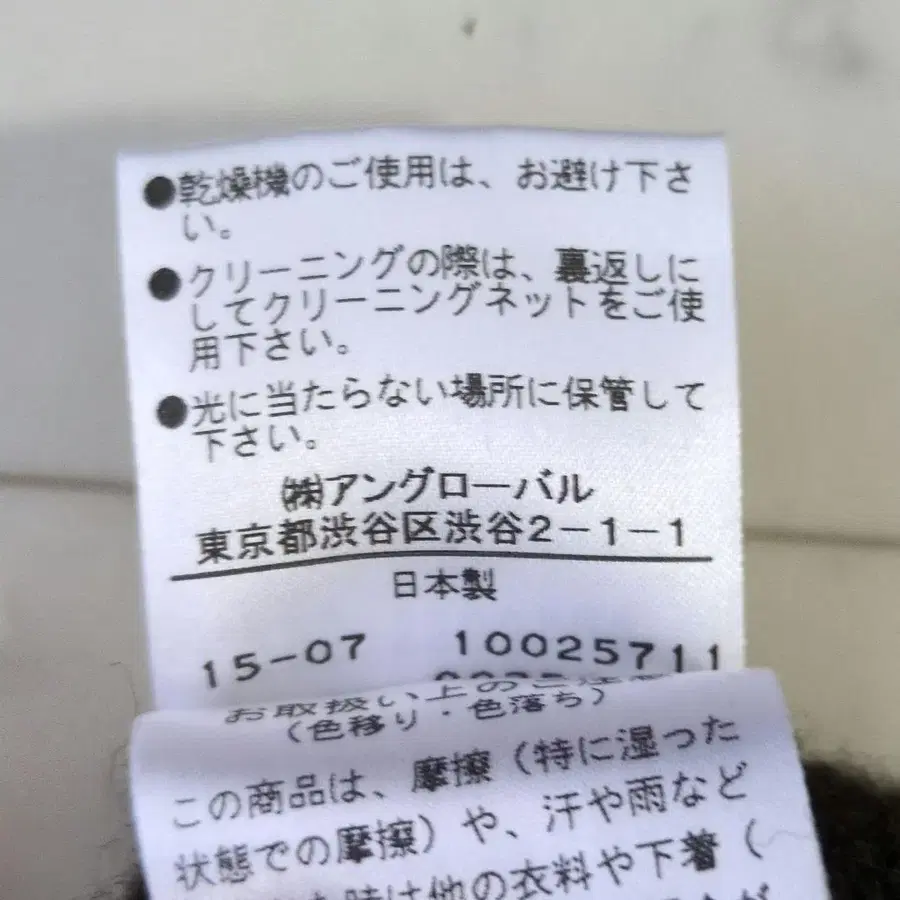 ●乾燥機のご使用は、お避け下さ
い。
●クリーニングの際は、裏返しに
してクリーニングネットをご使
用下さい。
●光に当たらない場所に保管して
下さい。
㈱アングローバル
東京都渋谷区渋谷2-1-1
日本製
15-07 10025711
お取扱い上のご注意
(色移り・色落ち)
この商品は、摩擦(特に湿った
状態での摩擦)や、汗や雨など
時は他の衣料や下着(